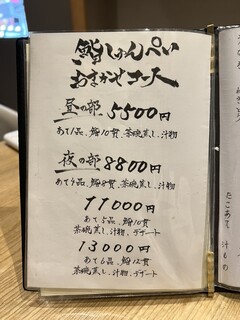 鮨しゅんぺい
おまかせコース
昼の部 5500円
あて1品、鮨10貫、茶碗蒸し、汁物
夜の部 8800円
あて4品、鮨8貫、茶碗蒸し、汁物
11000円
あて5品、鮨10貫
茶碗蒸し、汁物、デザート
13000円
あて6品、鮨12貫
茶碗蒸し、汁物、デザート
たこあて
汁もの